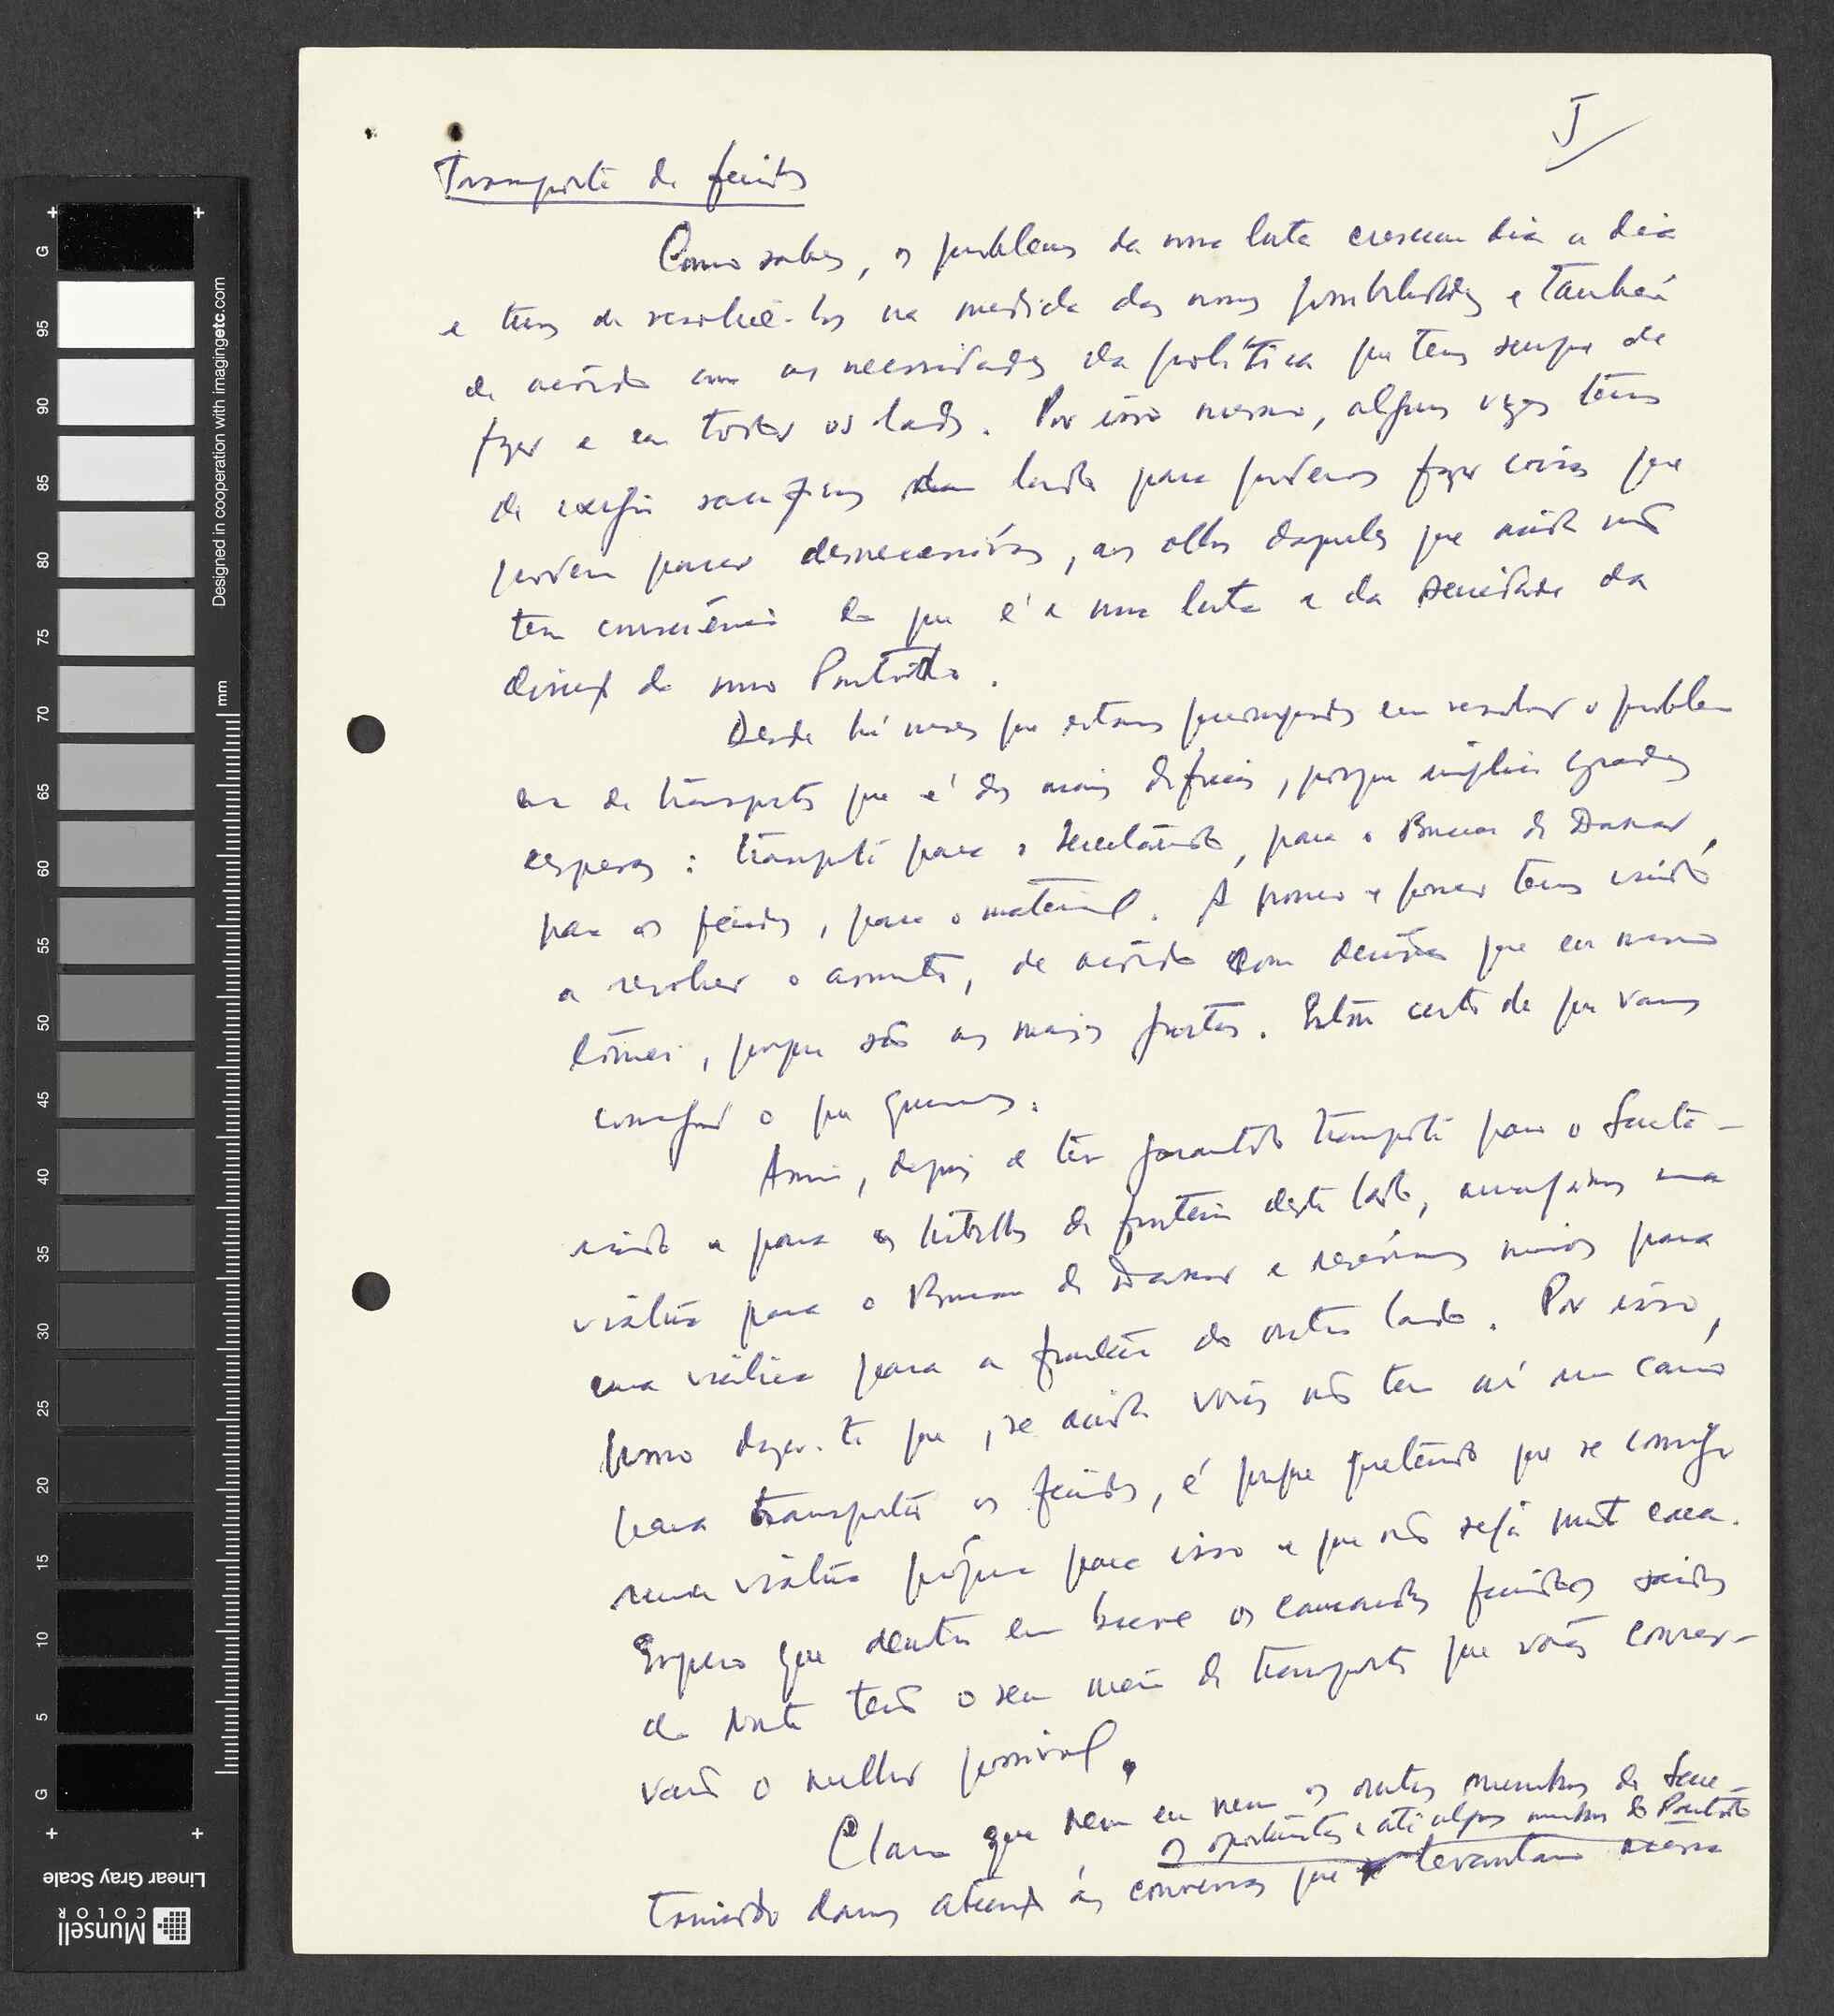 J
Transporte de feridos
Como sabes, os problemas da nossa luta crescem dia a dia
e temos de resolvê-los na medida das nossas possibilidades e também
de acôrdo com as necessidades da política que temos sempre de
fazer e em todos os lados. Por isso mesmo, algumas vezes temos
de exigir sacrifícios dum lado para podermos fazer coisas que
podem parecer desnecessárias, aos olhos daqueles que ainda não
tem consciência do que é a nossa luta e da seriedade da
direcção do nosso Partido.
Desde há meses que estamos preocupados em resolver o problema
de transportes que é dos mais difíceis, porque implica grandes
despesas: transporte para o Secretariado, para o Bureau de Dakar,
para os feridos, para o material. A pouco e pouco temos vindo
a resolver o assunto, de acôrdo com decisões que eu mesmo
tomei, porque são as mais justas. Estou certo de que vamos
conseguir o que queremos.
Assim, depois de ter garantido transporte para o Secreta-
riado e para os trabalhos da fronteira deste lado, arranjámos uma
viatura para o Bureau de Dakar e
uma viatura para a fronteira do outro lado. Por isso,
posso dizer-te que, se ainda vocês não tem aí um carro
para transportar os feridos, é porque pretendo que se consiga
uma viatura própria para isso e que não seja muito cara.
Espero que dentro em breve os camaradas feridos
do Norte terão o seu meio de transporte que vocês conser-
varão o melhor possível.
Claro que nem eu nem os outros membros do Secre-
os oportunistas e até alguns membros do Partido
tariado damos atenção às conversas que levantam acêrca